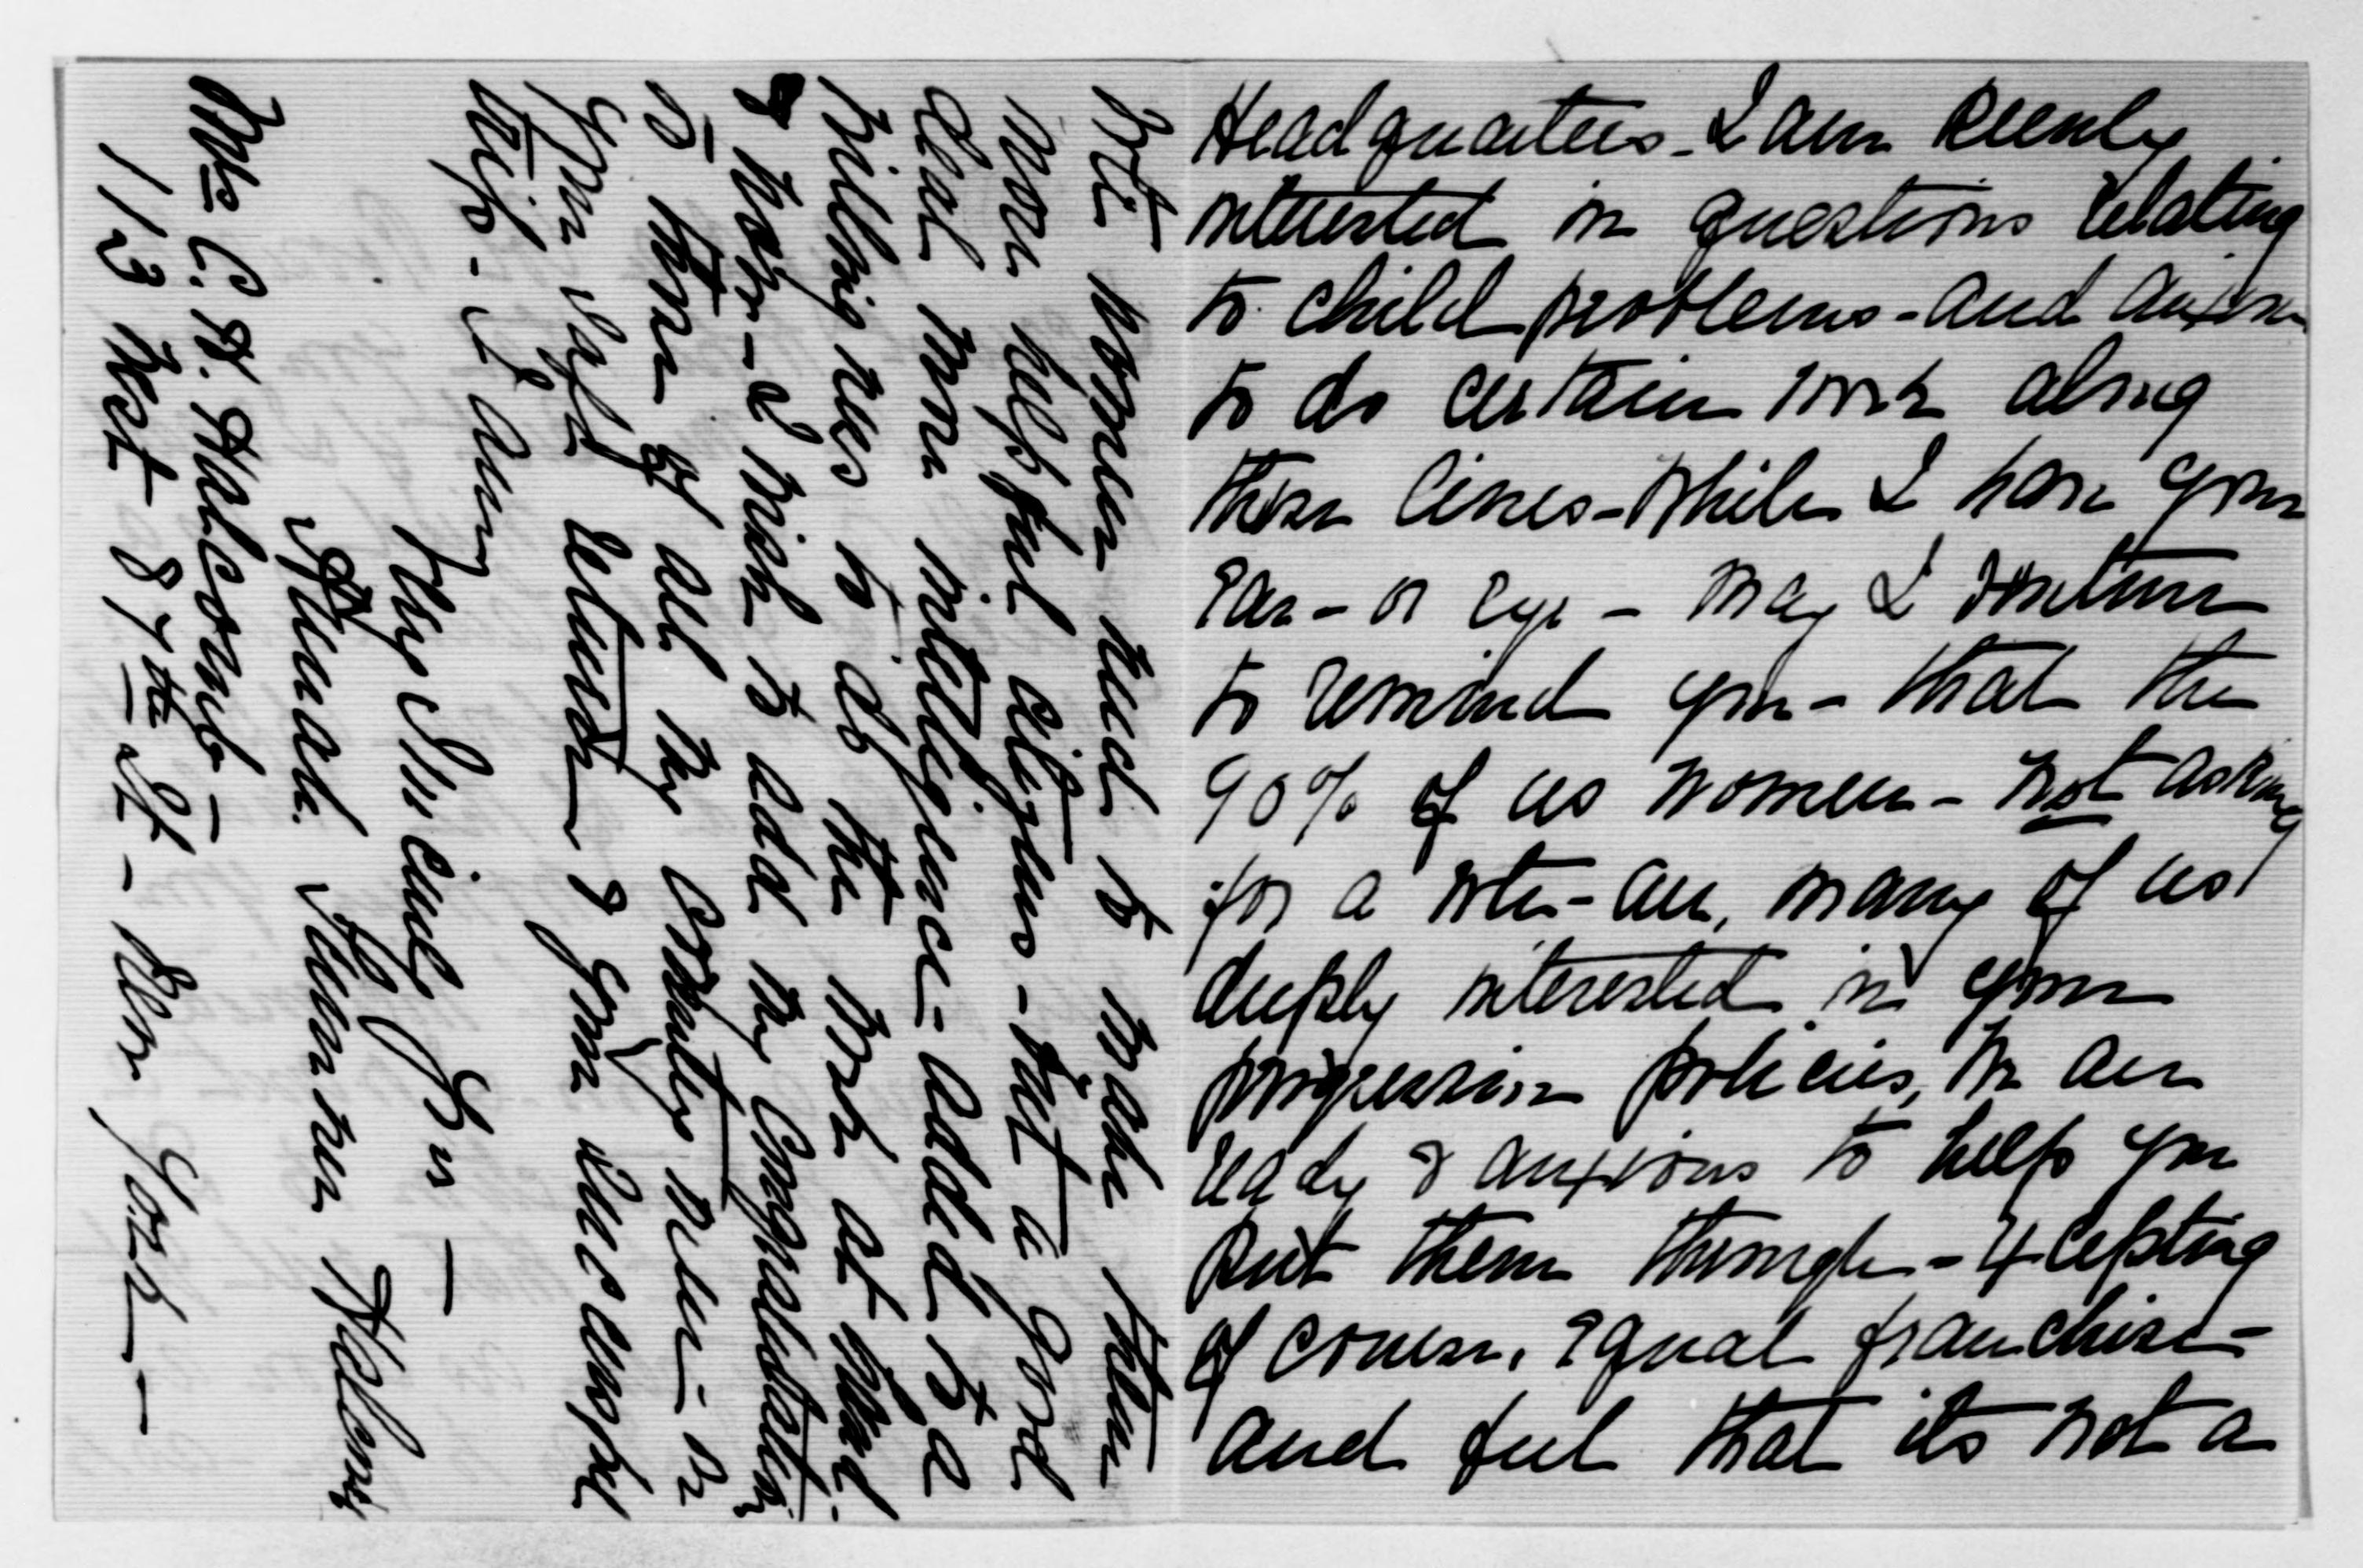 Headquarters. I am keenly
interested in questions relating
to child problems - and anxious
to do certain work along
these lines - While I have your
ear - or eye - may I venture
to remind you - that the
90% of us women - not asking
for a vote - are, many of us
deeply interested in your
progressive policies, we are
ready & anxious to help you
put them through - excepting
of course, equal franchise -
and feel that its not a
vote women need to make them
more helpful citizens - but a good
deal more intelligence - added to a
willingness to do the work at hand.
& now - I wish to add my congratulations
to those of all the Country over - on
your safe return & your successful
trip - I am
Very Sincerely Yrs -
Amanda Skinner Halcomb
Mrs C. H. Halcomb -
113 West 87th St - New York -